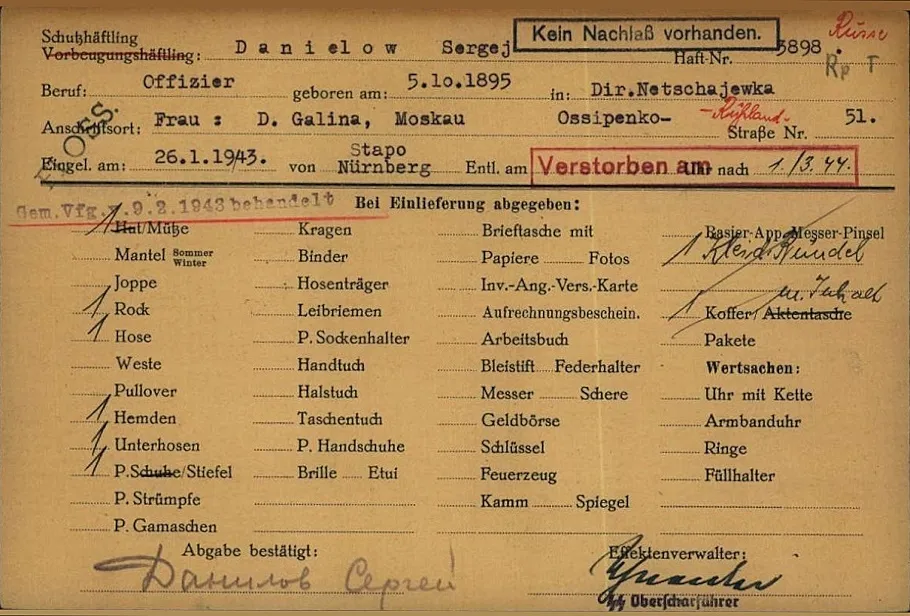 Schutzhäftling
Vorbeugungshäftling: Danielow Sergej Kein Nachlaß vorhanden. Haft-Nr. 3898. Russe
Rp T
Beruf: Offizier geboren am: 5.10.1895 in: Dir.Netschajewka
Anschriftsort: Frau: D. Galina, Moskau Ossipenko- -Rußland- Straße Nr. 51.
FLOSS.
Eingel. am: 26.1.1943. von Stapo Nürnberg Entl. am Verstorben am Uhr nach 1./3.44.
Gem.Vfg.v.9.2.1943 behandelt Bei Einlieferung abgegeben:
1 Hut/Mütze Kragen Brieftasche mit Rasier-App. Messer-Pinsel
Mantel Sommer Winter Binder Papiere Fotos 1 Kleid.Bündel
Joppe Hosenträger Inv.-Ang.-Vers.-Karte m. Inhalt
1 Rock Leibriemen Aufrechnungsbeschein. 1 Koffer/Aktentasche
1 Hose P. Sockenhalter Arbeitsbuch Pakete
Weste Handtuch Bleistift Federhalter Wertsachen:
Pullover Halstuch Messer Schere Uhr mit Kette
1 Hemden Taschentuch Geldbörse Armbanduhr
1 Unterhosen P. Handschuhe Schlüssel Ringe
1 P.Schuhe/Stiefel Brille Etui Feuerzeug Füllhalter
P. Strümpfe Kamm Spiegel
P. Gamaschen
Abgabe bestätigt: Effektenverwalter:
Данилов Сергей
SS Oberscharführer